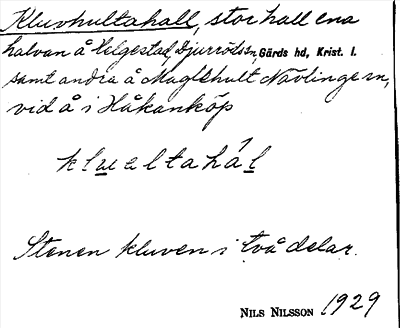 Kluvhultahall, stor hall ena
halvan å Helgestad, Djurröds sn, Gärds hd, Krist. l.
samt andra å Maglehult Nävlinge sn,
vid å i Håkanköp
klueltahál
Stenen kluven i två delar.
NILS NILSSON 1929